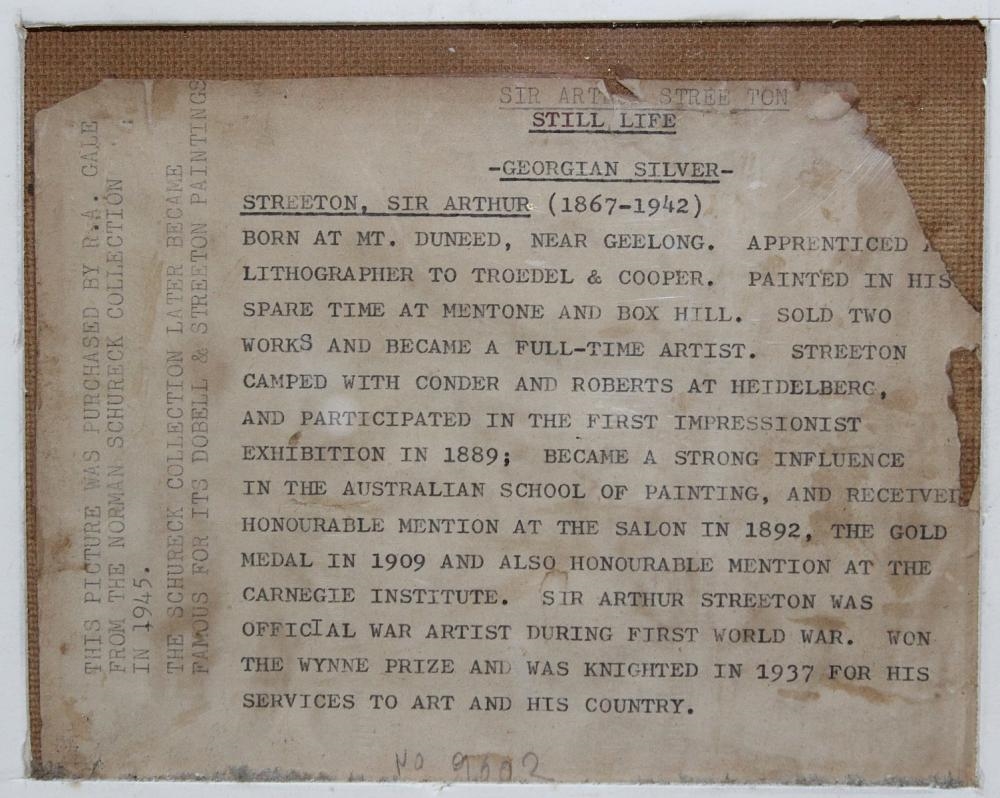 SIR ARTHUR STREETON
STILL LIFE
-GEORGIAN SILVER-
STREETON, SIR ARTHUR (1867-1942)
BORN AT MT. DUNEED, NEAR GEELONG. APPRENTICED
LITHOGRAPHER TO TROEDEL & COOPER. PAINTED IN HIS
SPARE TIME AT MENTONE AND BOX HILL. SOLD TWO
WORKS AND BECAME A FULL-TIME ARTIST. STREETON
CAMPED WITH CONDER AND ROBERTS AT HEIDELBERG,
AND PARTICIPATED IN THE FIRST IMPRESSIONIST
EXHIBITION IN 1889; BECAME A STRONG INFLUENCE
IN THE AUSTRALIAN SCHOOL OF PAINTING, AND RECEIVED
HONOURABLE MENTION AT THE SALON IN 1892, THE GOLD
MEDAL IN 1909 AND ALSO HONOURABLE MENTION AT THE
CARNEGIE INSTITUTE. SIR ARTHUR STREETON WAS
OFFICIAL WAR ARTIST DURING FIRST WORLD WAR. WON
THE WYNNE PRIZE AND WAS KNIGHTED IN 1937 FOR HIS
SERVICES TO ART AND HIS COUNTRY.
THIS PICTURE WAS PURCHASED BY R.A. GALE
FROM THE NORMAN SCHURECK COLLECTION
IN 1945.
THE SCHURECK COLLECTION LATER BECAME
FAMOUS FOR ITS DOBELL & STREETON PAINTINGS
No